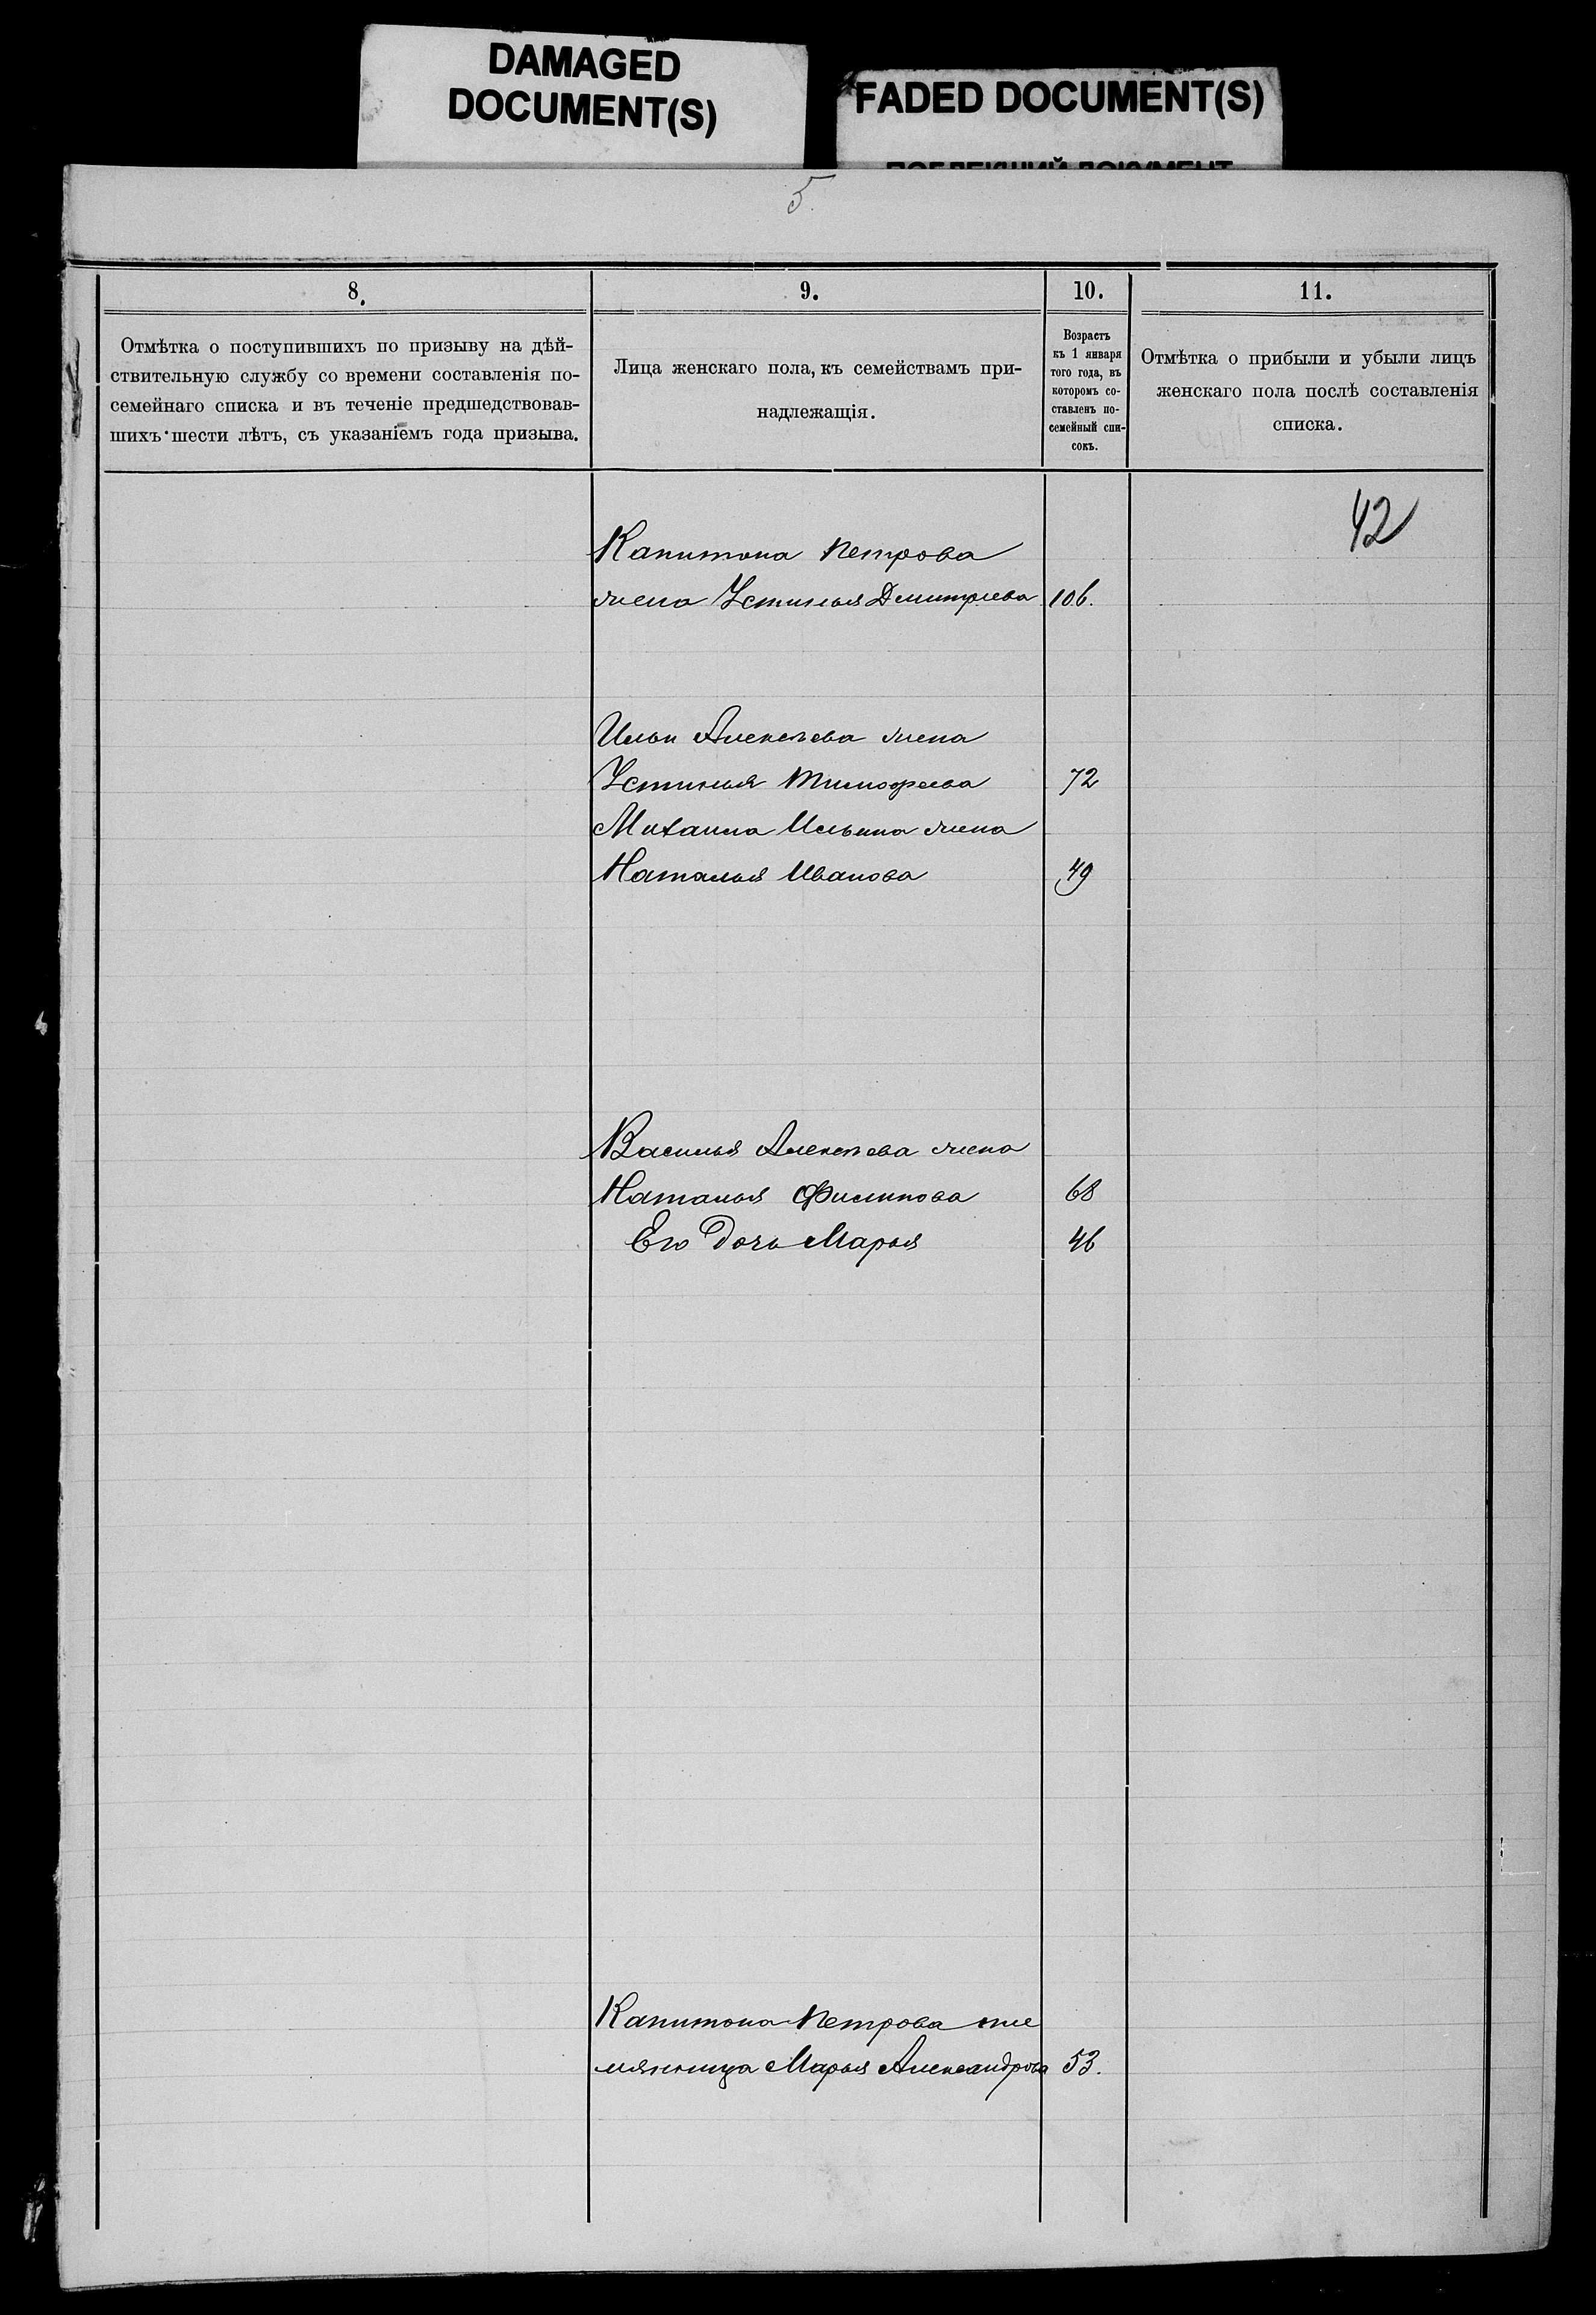 DAMAGED
DOCUMENT(S)
FADED DOCUMENT(S)
5.
8.
9.
10.
11.
Отмѣтка о поступившихъ по призыву на дѣй-
ствительную службу со времени составленія по-
семейнаго списка и въ теченіе предшедствовав-
шихъ шести лѣтъ, съ указаніемъ года призыва.
Лица женскаго пола, къ семействамъ при-
надлежащія.
Возрастъ
къ 1 января
того года, въ
которомъ со-
ставленъ по-
семейный спи-
сокъ.
Отмѣтка о прибыли и убыли лицъ
женскаго пола послѣ составленія
списка.
42
Капитона Петрова
жена Устинья Дмитриева 106.
Ильи Алексѣева жена
Устинья Тимофеева 72
Михаила Ильина жена
Наталья Иванова 49
Василья Алексѣева жена
Наталья Филипова 68
Его дочь Марья 46
Капитона Петрова пле
мянница Марья Александрова 53.